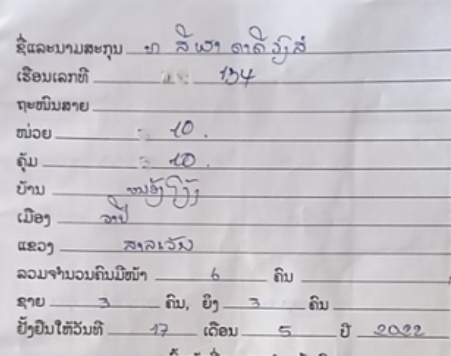 ຊື່ແລະນາມສະກຸນ ທ ສີພາ
ເຮືອນເລກທີ 134
ຖະໜົນສາຍ
ໜ່ວຍ 10.
ຄຸ້ມ 10.
ບ້ານ
ເມືອງ ວາປີ
ແຂວງ ສາລະວັນ
ລວມຈຳນວນຄົນມີໜ້າ 6 ຄົນ
ຊາຍ 3 ຄົນ, ຍິງ 3 ຄົນ
ຢັ້ງຢືນໃຫ້ວັນທີ 17 ເດືອນ 5 ປີ 2022